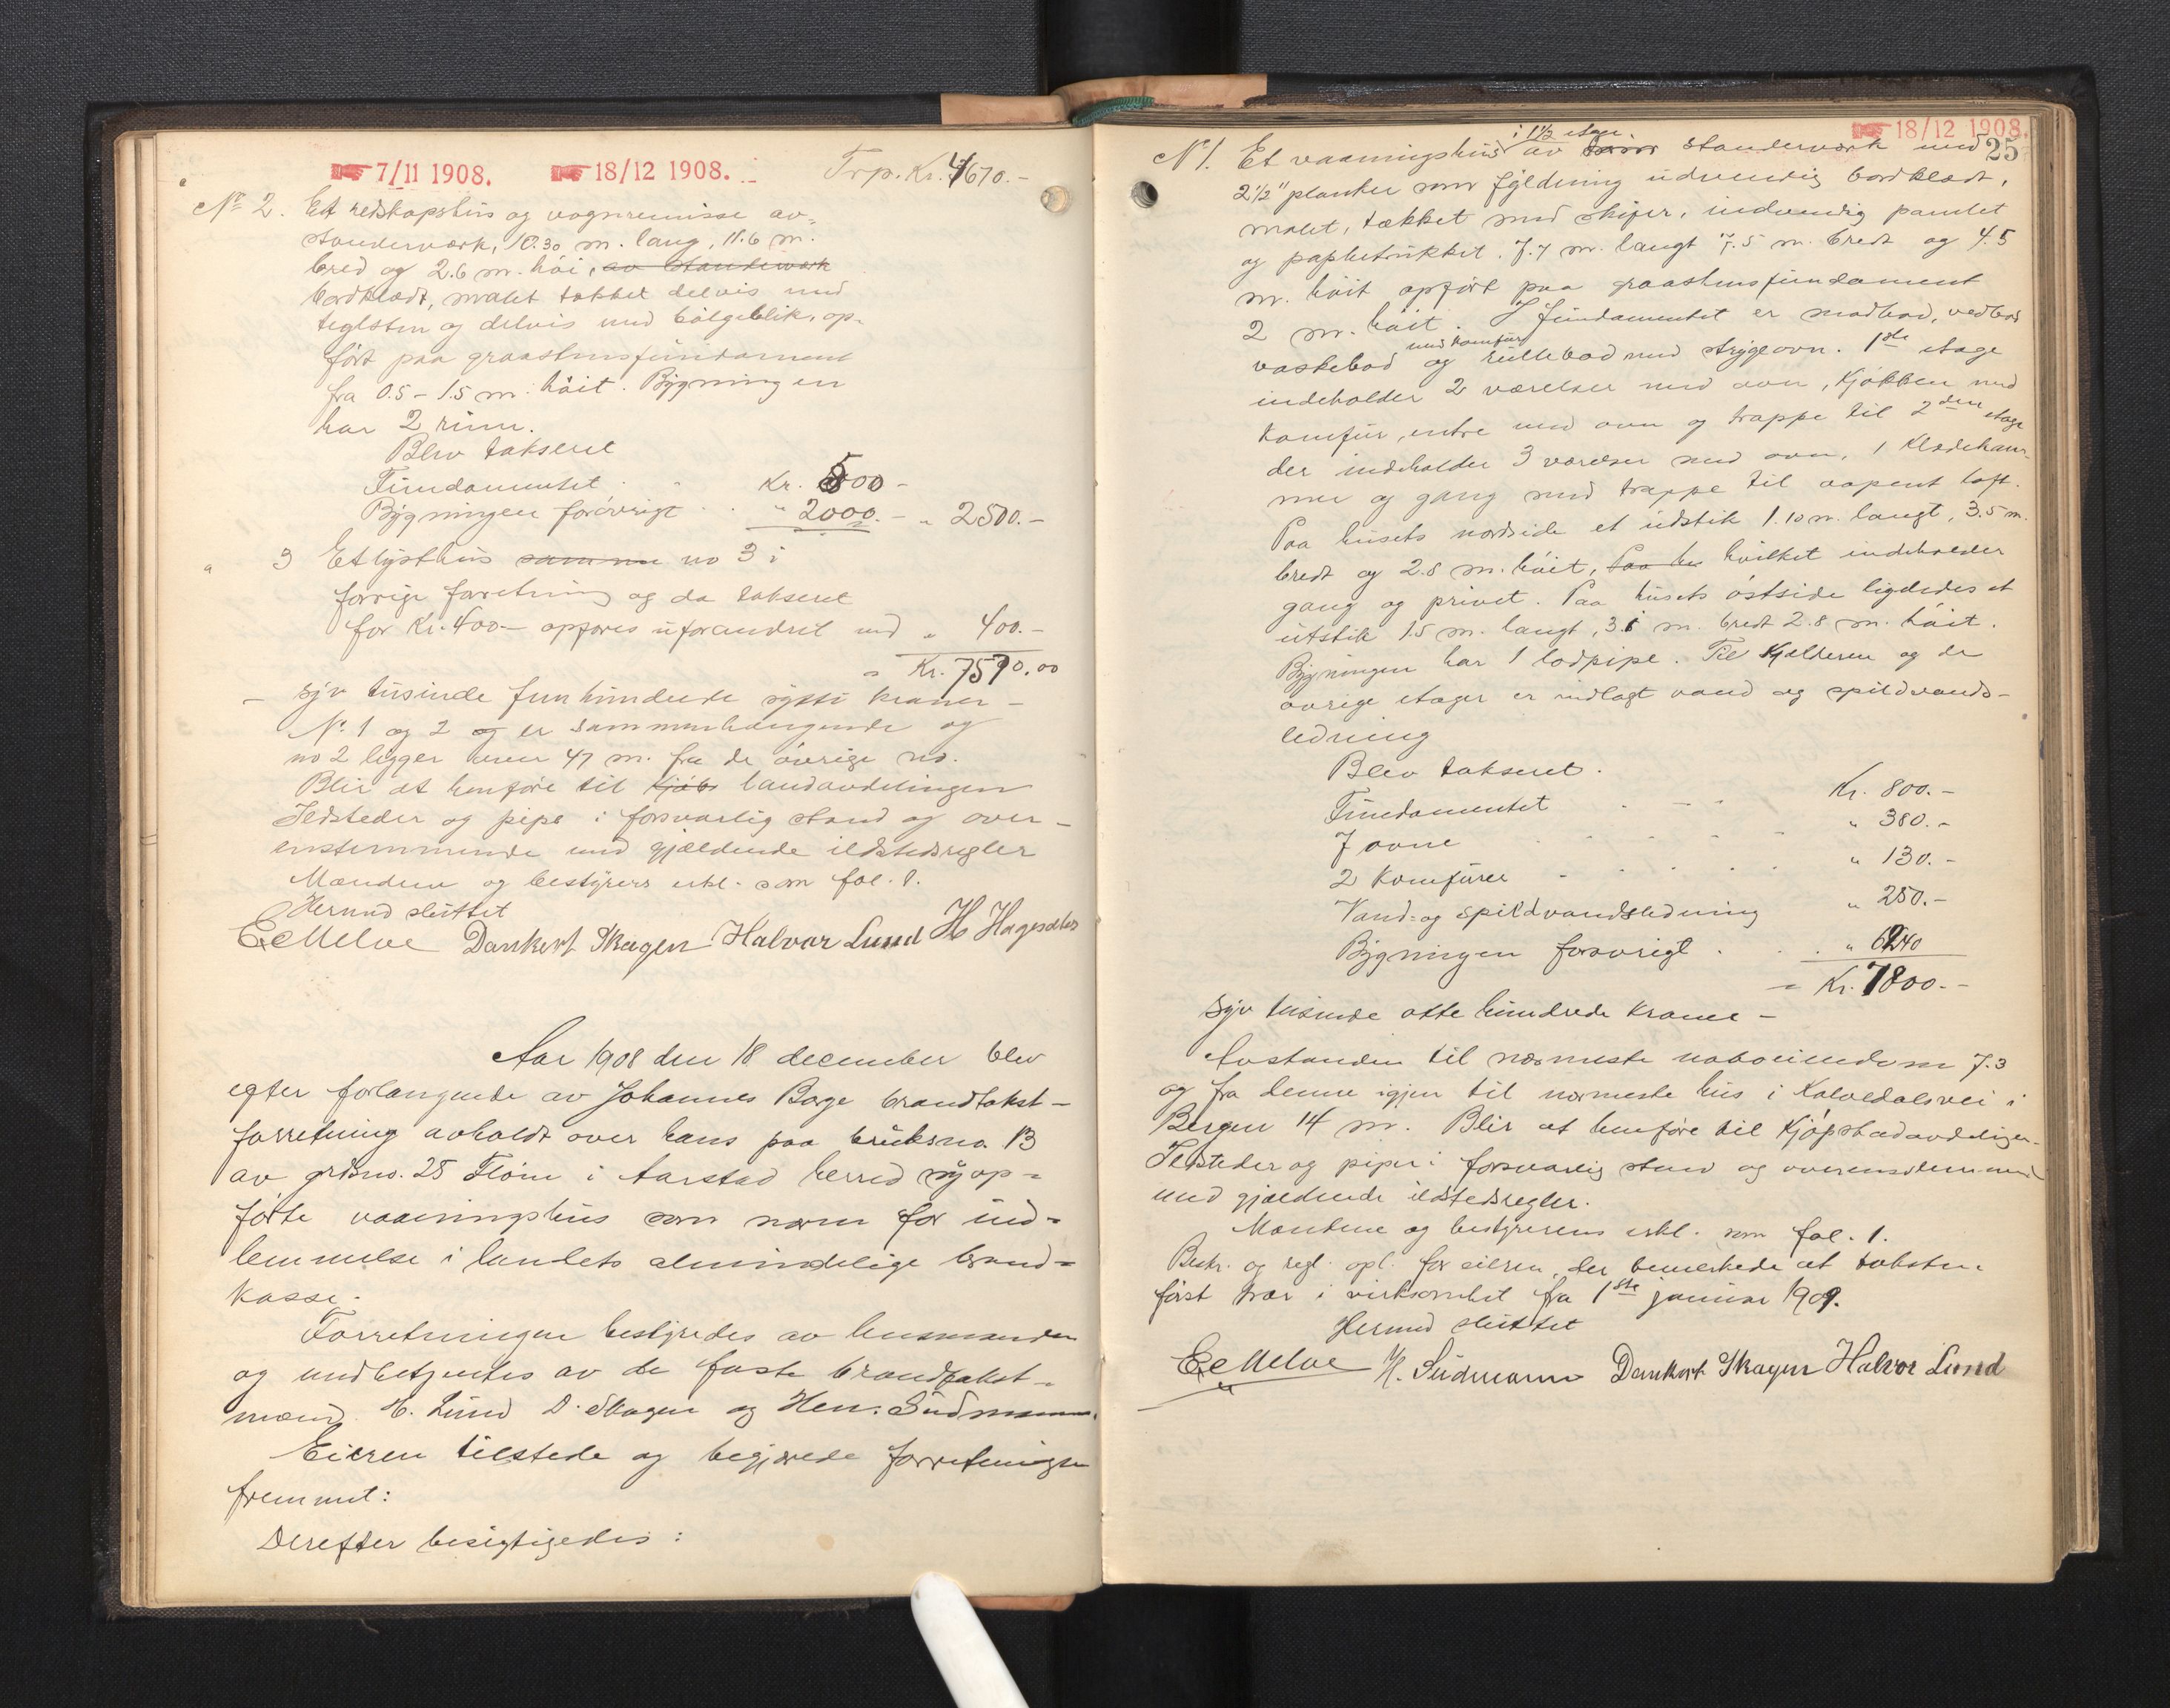 7/11 1908. 18/12 1908. Trp. Kr. 4670.-
No 2. Et redskapshus og vognremisse av
standerværk, 10.30 m. lang, 11.6 m.
bred og 2.6 m. höi, av standerværk
bordklædt, malet tækket delvis med
teglsten og delvis med bölgeblik, op-
ført paa graastensfundament
fra 0.5 - 1.5 m. höit. Bygningen
har 2 rum.
Blev takseret
Fundamentet . - Kr. 500 -
Bygningen forövrigt . . " 2000.- " 2500.-
" 3 Et lysthus samme no 3 i
forrige forretning og da takseret
for Kr. 400- opføres uforandret med " 400.-
= Kr. 7570.00
- syv tusinde fem hundrede sytti kroner -
No 1 og 2 og er sammenhængende og
no 2 ligger 47 m. fra de övrige no.
Blir at henføre til kjöbs landavdelingen
Ildsteder og pipe i forsvarlig stand og over-
enstemmende med gjældende ildstedsregler
Mændene og bestyrers erkl. som fol. 1.
Hermed sluttet
E Melve Dankert Skagen Halvor Lund H Hagesæter
Aar 1908 den 18 december blev
efter forlangende av Johannes Borge brandtakst-
forretning avholdt over hans paa bruksno. 13
av grdsno. 25 Flöen i Aarstad herred nyop-
førte vaaningshus som norm for ind-
lemmelse i landets almindelige brand-
kasse.
Forretningen bestyredes av lensmanden
og medbetjentes av de faste brandtakst-
mænd H. Lund D. Skagen og Hen. Südmann.
Eieren tilstede og begjærede forretningen
fremmet:
Derefter besigtigedes:
18/12 1908.
25
i 1 1/2 etage
No 1. Et vaaningshus av standerværk med
2 1/2" planker som fyldning udvendig bordklædt,
malet, tækket med skifer, indvendig panelet
og papbetrukket. 7.7 m. langt 7.5 m. bredt og 4.5
m. höit opført paa graastensfundament
2 m. höit. I fundamentet er madbod, vedbod
med komfur
vaskebod og rullebod med strygeovn. 1ste etage
indeholder 2 værelser med ovn, Kjökken med
Komfur, entre med ovn og trappe til 2den etage
der indeholder 3 værelser med ovn, 1 Klædekam-
mer og gang med trappe til aapent loft.
Paa husets nordside et udstik 1.10 m. langt, 3.5 m.
bredt og 2.8 m. höit, Paa hu hvilket indeholder
gang og privet. Paa husets östside ligeledes et
utstik 1.5 m. langt, 3.1 m. bredt 2.8 m. höit.
Bygningen har 1 lodpipe. Til Kjelderen og de
övrige etager er indlagt vand og spildvands-
ledning
Blev takseret.
Fundamentet . - - Kr. 800.-
7 ovne . . - - - " 380.-
2 Komfurer - . . . . " 130.-
Vand- og spildvandsledning " 250.-
Bygningen forövrigt . . . " 6240
= Kr. 7800.-
syv tusinde otte hundrede Kroner -
Avstanden til nærmeste naboeiendom 7.3
og fra denne igjen til nærmeste hus i Kalvedalsvei i
Bergen 14 m. Blir at henføre til Kjöpstadavdelingen.
Ildsteder og piper i forsvarlig stand og overensstemmende
med gjældende ildstedsregler.
Mændene og bestyrerens erkl. som fol. 1.
Beskr. og regl. opl. for eieren, der bemerkede at taksten
först trær i virksomhet fra 1ste januar 1909.
Hermed sluttet
E Melve H. Südmann Dankert Skagen Halvor Lund